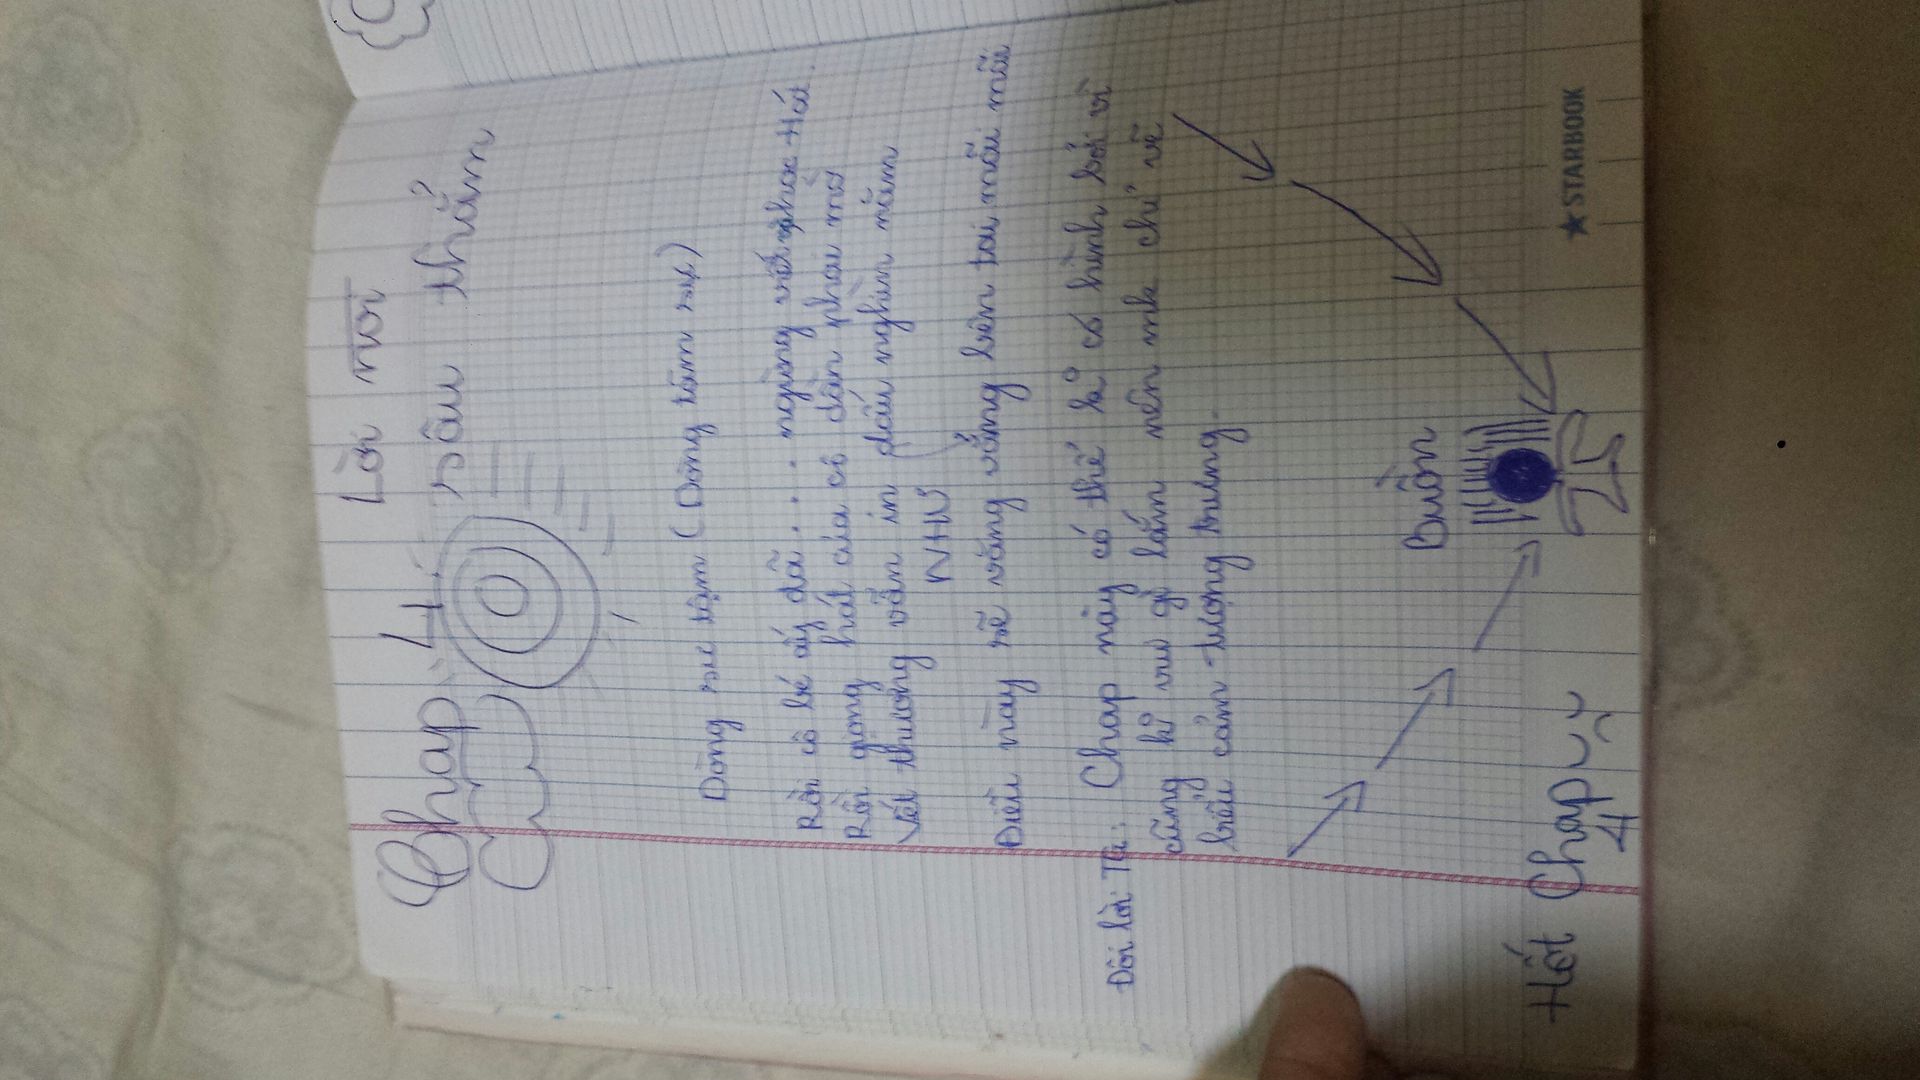 Chap 4: Lời nói
sâu thẳm
Dòng suy ngẫm (Dòng tâm sự)
Rồi cô bé ấy đã... ngừng hát
Rồi giọng hát của cô dần phai mờ
Vết thương vẫn in dấu nghìn năm
NHƯ
Điều này sẽ vĩnh viễn tồn tại mãi mãi
Đôi lời: TG: Chap này có thể k° có hình bởi vì
cũng k° vui gì lắm nên mk chỉ vẽ
biểu cảm tượng trưng.
Buồn
Hết Chap 4
★STARBOOK